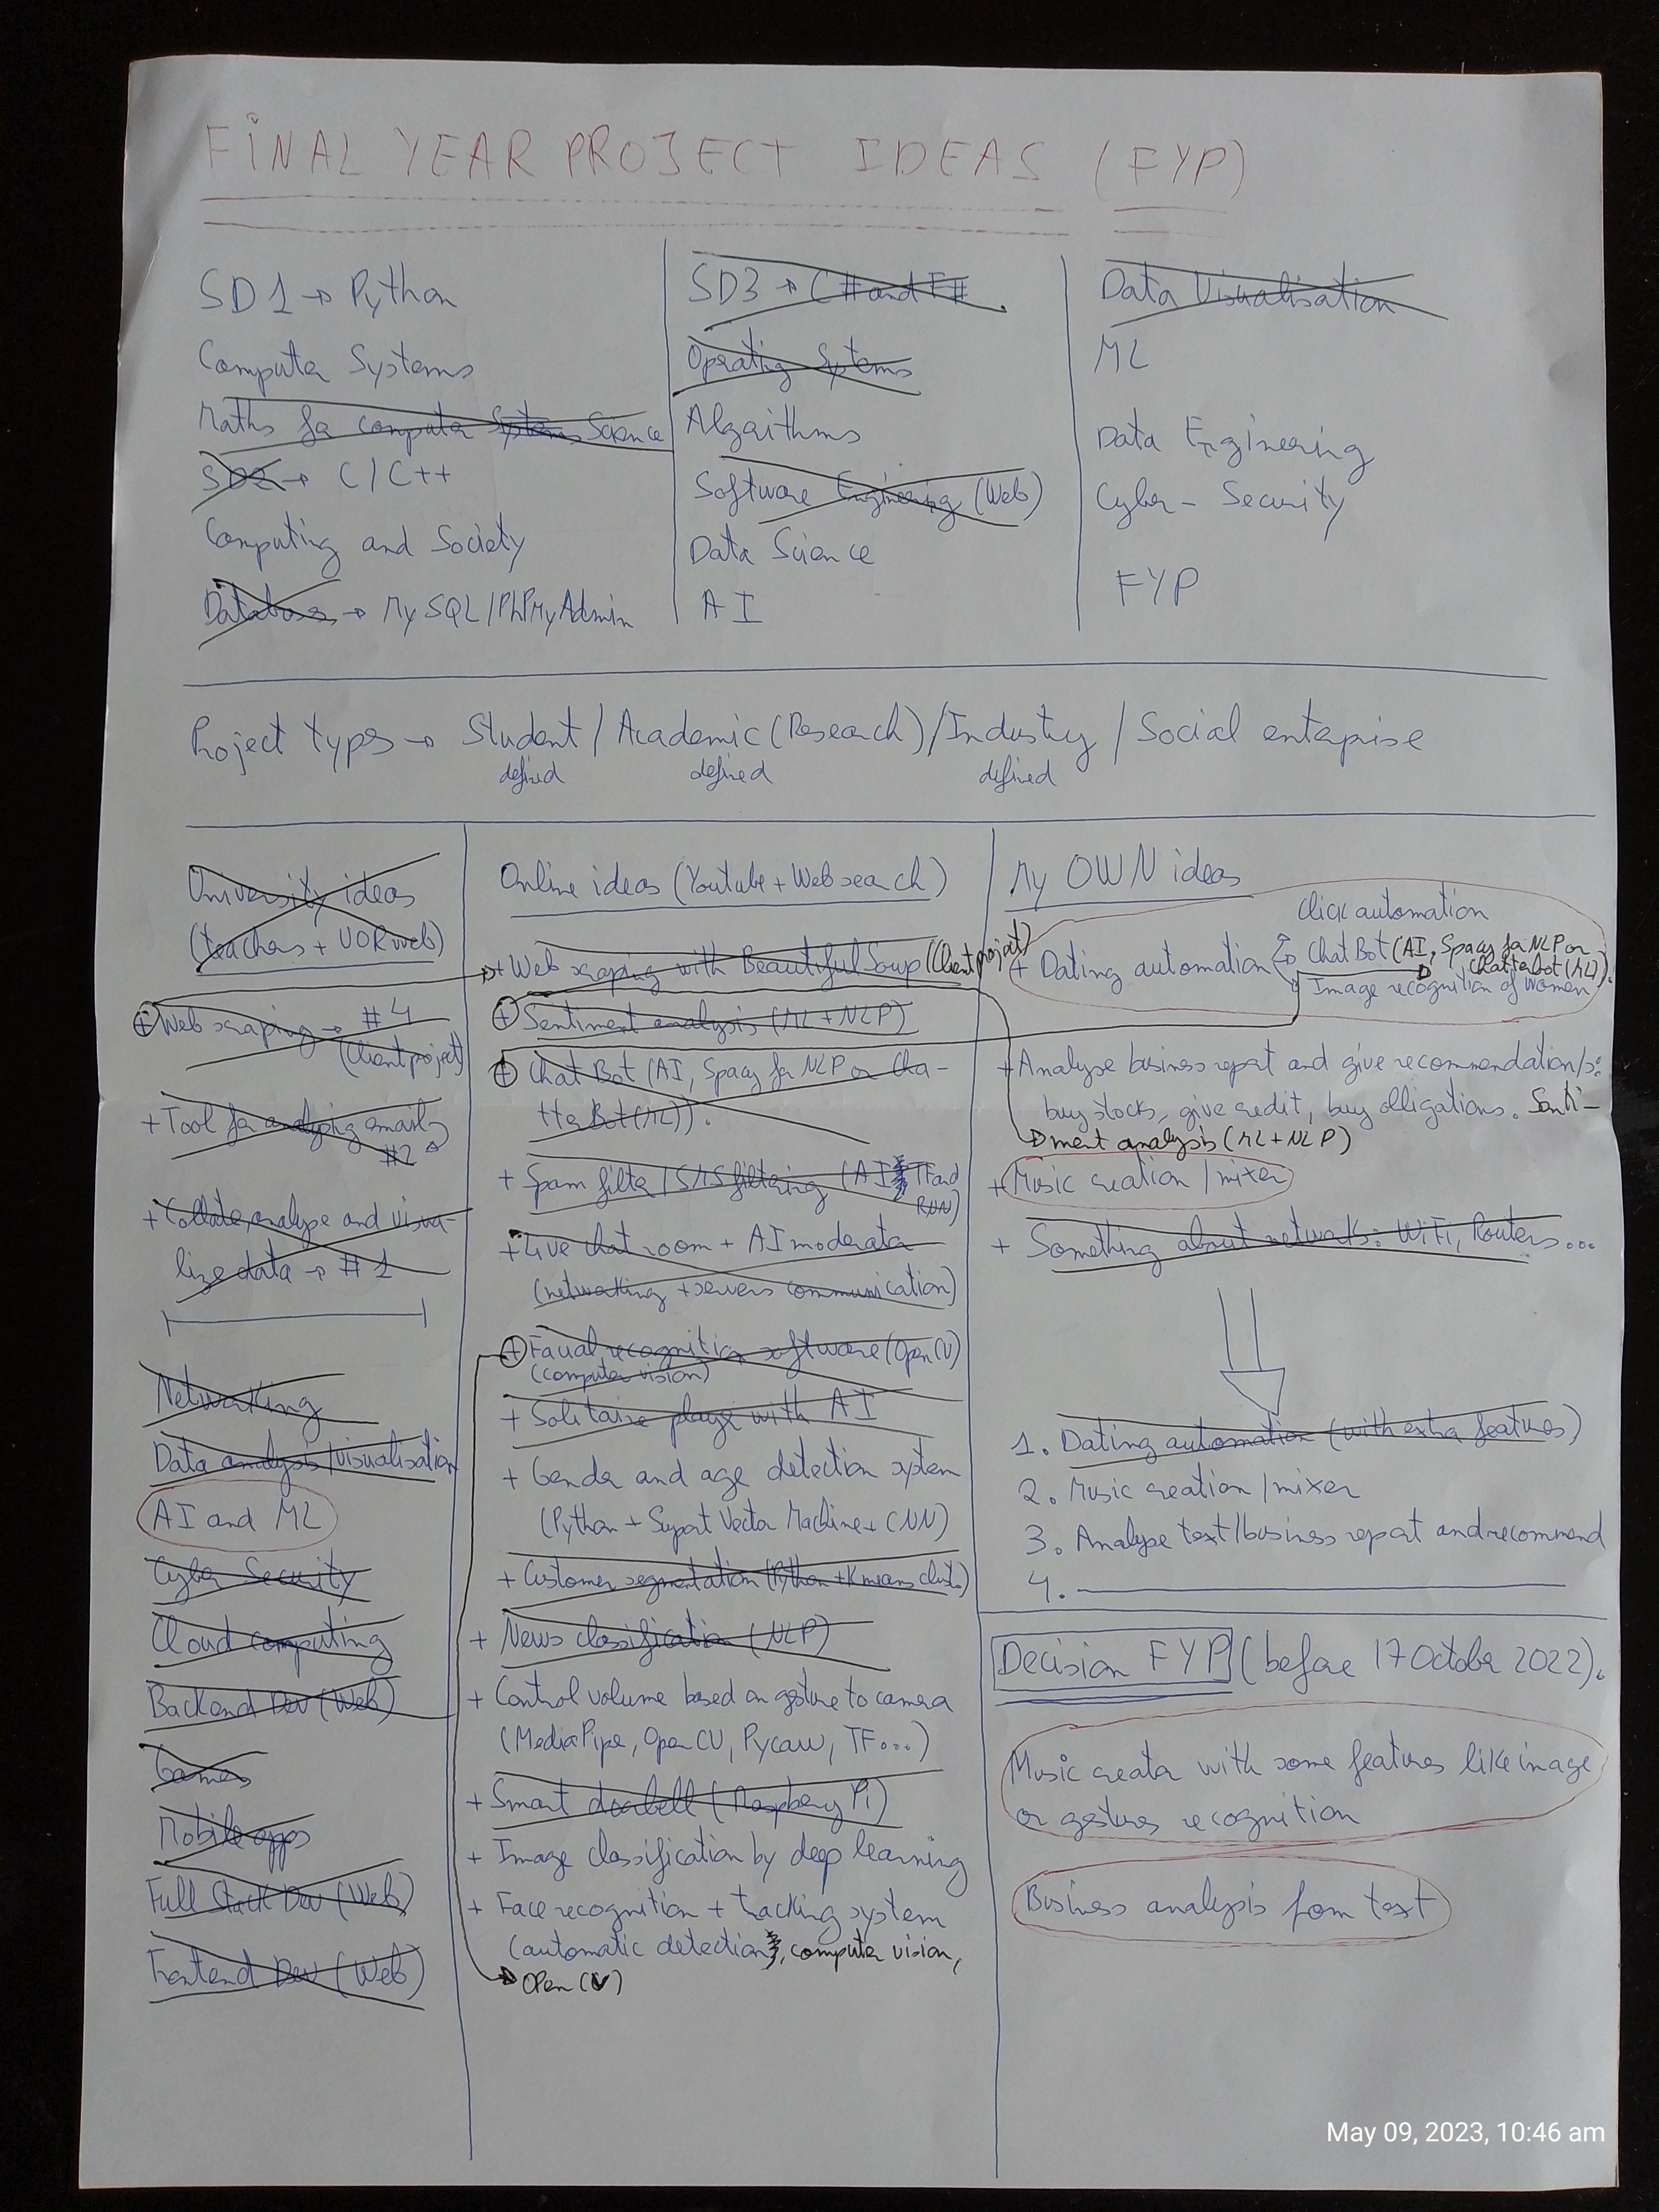 FINAL YEAR PROJECT IDEAS (FYP)
SD1 → Python
Computer Systems
Maths for computer Systems Science
SD2 → C/C++
Computing and Society
Databases → MySQL/PhPMyAdmin
SD3 → C# and F#
Operating Systems
Algorithms
Software Engineering (Web)
Data Science
AI
Data Visualisation
ML
Data Engineering
Cyber-Security
FYP
Project types → Student / Academic (Research) / Industry / Social enterprise
defined defined defined
University ideas
(teachers + UOR web)
+ Web scraping → #4
(client project)
+ Tool for analyzing emails
#2
+ Collate, analyse and visua-
lize data → #1
Networking
Data analysis/visualisation
AI and ML
Cyber Security
Cloud computing
Backend Dev (Web)
Games
Mobile apps
Full Stack Dev (Web)
Frontend Dev (Web)
Online ideas (Youtube + Websearch)
+ Web scraping with Beautiful Soup (Client project)
+ Sentiment analysis (ML + NLP)
+ Chat Bot (AI, Spacy for NLP or Cha-
tterBot (ML)).
+ Spam filter / SMS filtering (AI TF and
RNN)
+ Live chat room + AI moderator
(networking + servers communication)
+ Facial recognition software (OpenCV)
(computer vision)
+ Solitaire player with AI
+ Gender and age detection system
(Python + Support Vector Machine + CNN)
+ Customer segmentation (Python + Kmeans clust.)
+ News classification (NLP)
+ Control volume based on gesture to camera
(MediaPipe, OpenCV, Pycaw, TF...)
+ Smart doorbell (Raspberry Pi)
+ Image classification by deep learning
+ Face recognition + tracking system
(automatic detection, computer vision,
OpenCV)
My OWN ideas
Click automation
+ Dating automation ChatBot (AI, Spacy for NLP or
Chatterbot (ML)).
Image recognition of women
+ Analyse business report and give recommendation/s:
buy stocks, give credit, buy obligations. Senti-
ment analysis (ML + NLP)
+ Music creation / mixer
+ Something about networks: WiFi, Routers...
1. Dating automation (with extra features)
2. Music creation / mixer
3. Analyse text/business report and recommend
4.
Decision FYP (before 17 October 2022).
Music creator with some features like image
or gestures recognition
Business analysis from text
May 09, 2023, 10:46 am